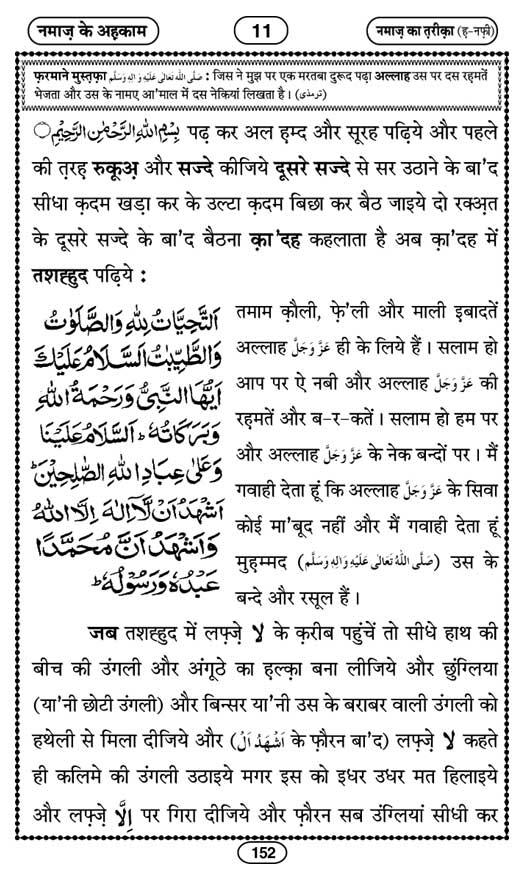 नमाज़ के अहकाम
11
नमाज़ का तरीक़ा (ह-नफ़ी)
फ़रमाने मुस्तफ़ा صَلَّى اللهُ تَعَالٰى عَلَيْهِ وَاٰلِهٖ وَسَلَّم : जिस ने मुझ पर एक मरतबा दुरूद पढ़ा अल्लाह उस पर दस रहमतें
भेजता और उस के नामए आ'माल में दस नेकियां लिखता है । (ترمذی)
بِسْمِ اللهِ الرَّحْمٰنِ الرَّحِيْمِ पढ़ कर अल हम्द और सूरह पढ़िये और पहले
की त़रह़ रुकूअ़ और सज्दे कीजिये दूसरे सज्दे से सर उठाने के बा'द
सीधा क़दम खड़ा कर के उल्टा क़दम बिछा कर बैठ जाइये दो रक्अ़त
के दूसरे सज्दे के बा'द बैठना क़ा'दह कहलाता है अब क़ा'दह में
तशह्हुद पढ़िये :
اَلتَّحِيَّاتُ لِلّٰهِ وَالصَّلَوٰتُ
وَالطَّيِّبٰتُ اَلسَّلَامُ عَلَيْكَ
اَيُّهَا النَّبِىُّ وَرَحْمَةُ اللهِ
وَبَرَكَاتُهٗ ؕ اَلسَّلَامُ عَلَيْنَا
وَعَلٰى عِبَادِ اللهِ الصّٰلِحِيْنَ ؕ
اَشْهَدُ اَنْ لَّآ اِلٰهَ اِلَّا اللهُ
وَاَشْهَدُ اَنَّ مُحَمَّدًا
عَبْدُهٗ وَرَسُوْلُهٗ ؕ
तमाम क़ौली, फ़े'ली और माली इबादतें
अल्लाह عَزَّوَجَلَّ ही के लिये हैं । सलाम हो
आप पर ऐ नबी और अल्लाह عَزَّوَجَلَّ की
रहमतें और ब-र-कतें । सलाम हो हम पर
और अल्लाह عَزَّوَجَلَّ के नेक बन्दों पर । मैं
गवाही देता हूं कि अल्लाह عَزَّوَجَلَّ के सिवा
कोई मा'बूद नहीं और मैं गवाही देता हूं
मुहम्मद (صَلَّى اللهُ تَعَالٰى عَلَيْهِ وَاٰلِهٖ وَسَلَّم) उस के
बन्दे और रसूल हैं ।
जब तशह्हुद में लफ़्ज़े لا के क़रीब पहुंचें तो सीधे हाथ की
बीच की उंगली और अंगूठे का ह़ल्क़ा बना लीजिये और छुंग्लिया
(या'नी छोटी उंगली) और बिन्सर या'नी उस के बराबर वाली उंगली को
हथेली से मिला दीजिये और (اَشْهَدُ اَلْ के फ़ौरन बा'द) लफ़्ज़े لا कहते
ही कलिमे की उंगली उठाइये मगर इस को इधर उधर मत हिलाइये
और लफ़्ज़े اِلَّا पर गिरा दीजिये और फ़ौरन सब उंग्लियां सीधी कर
152